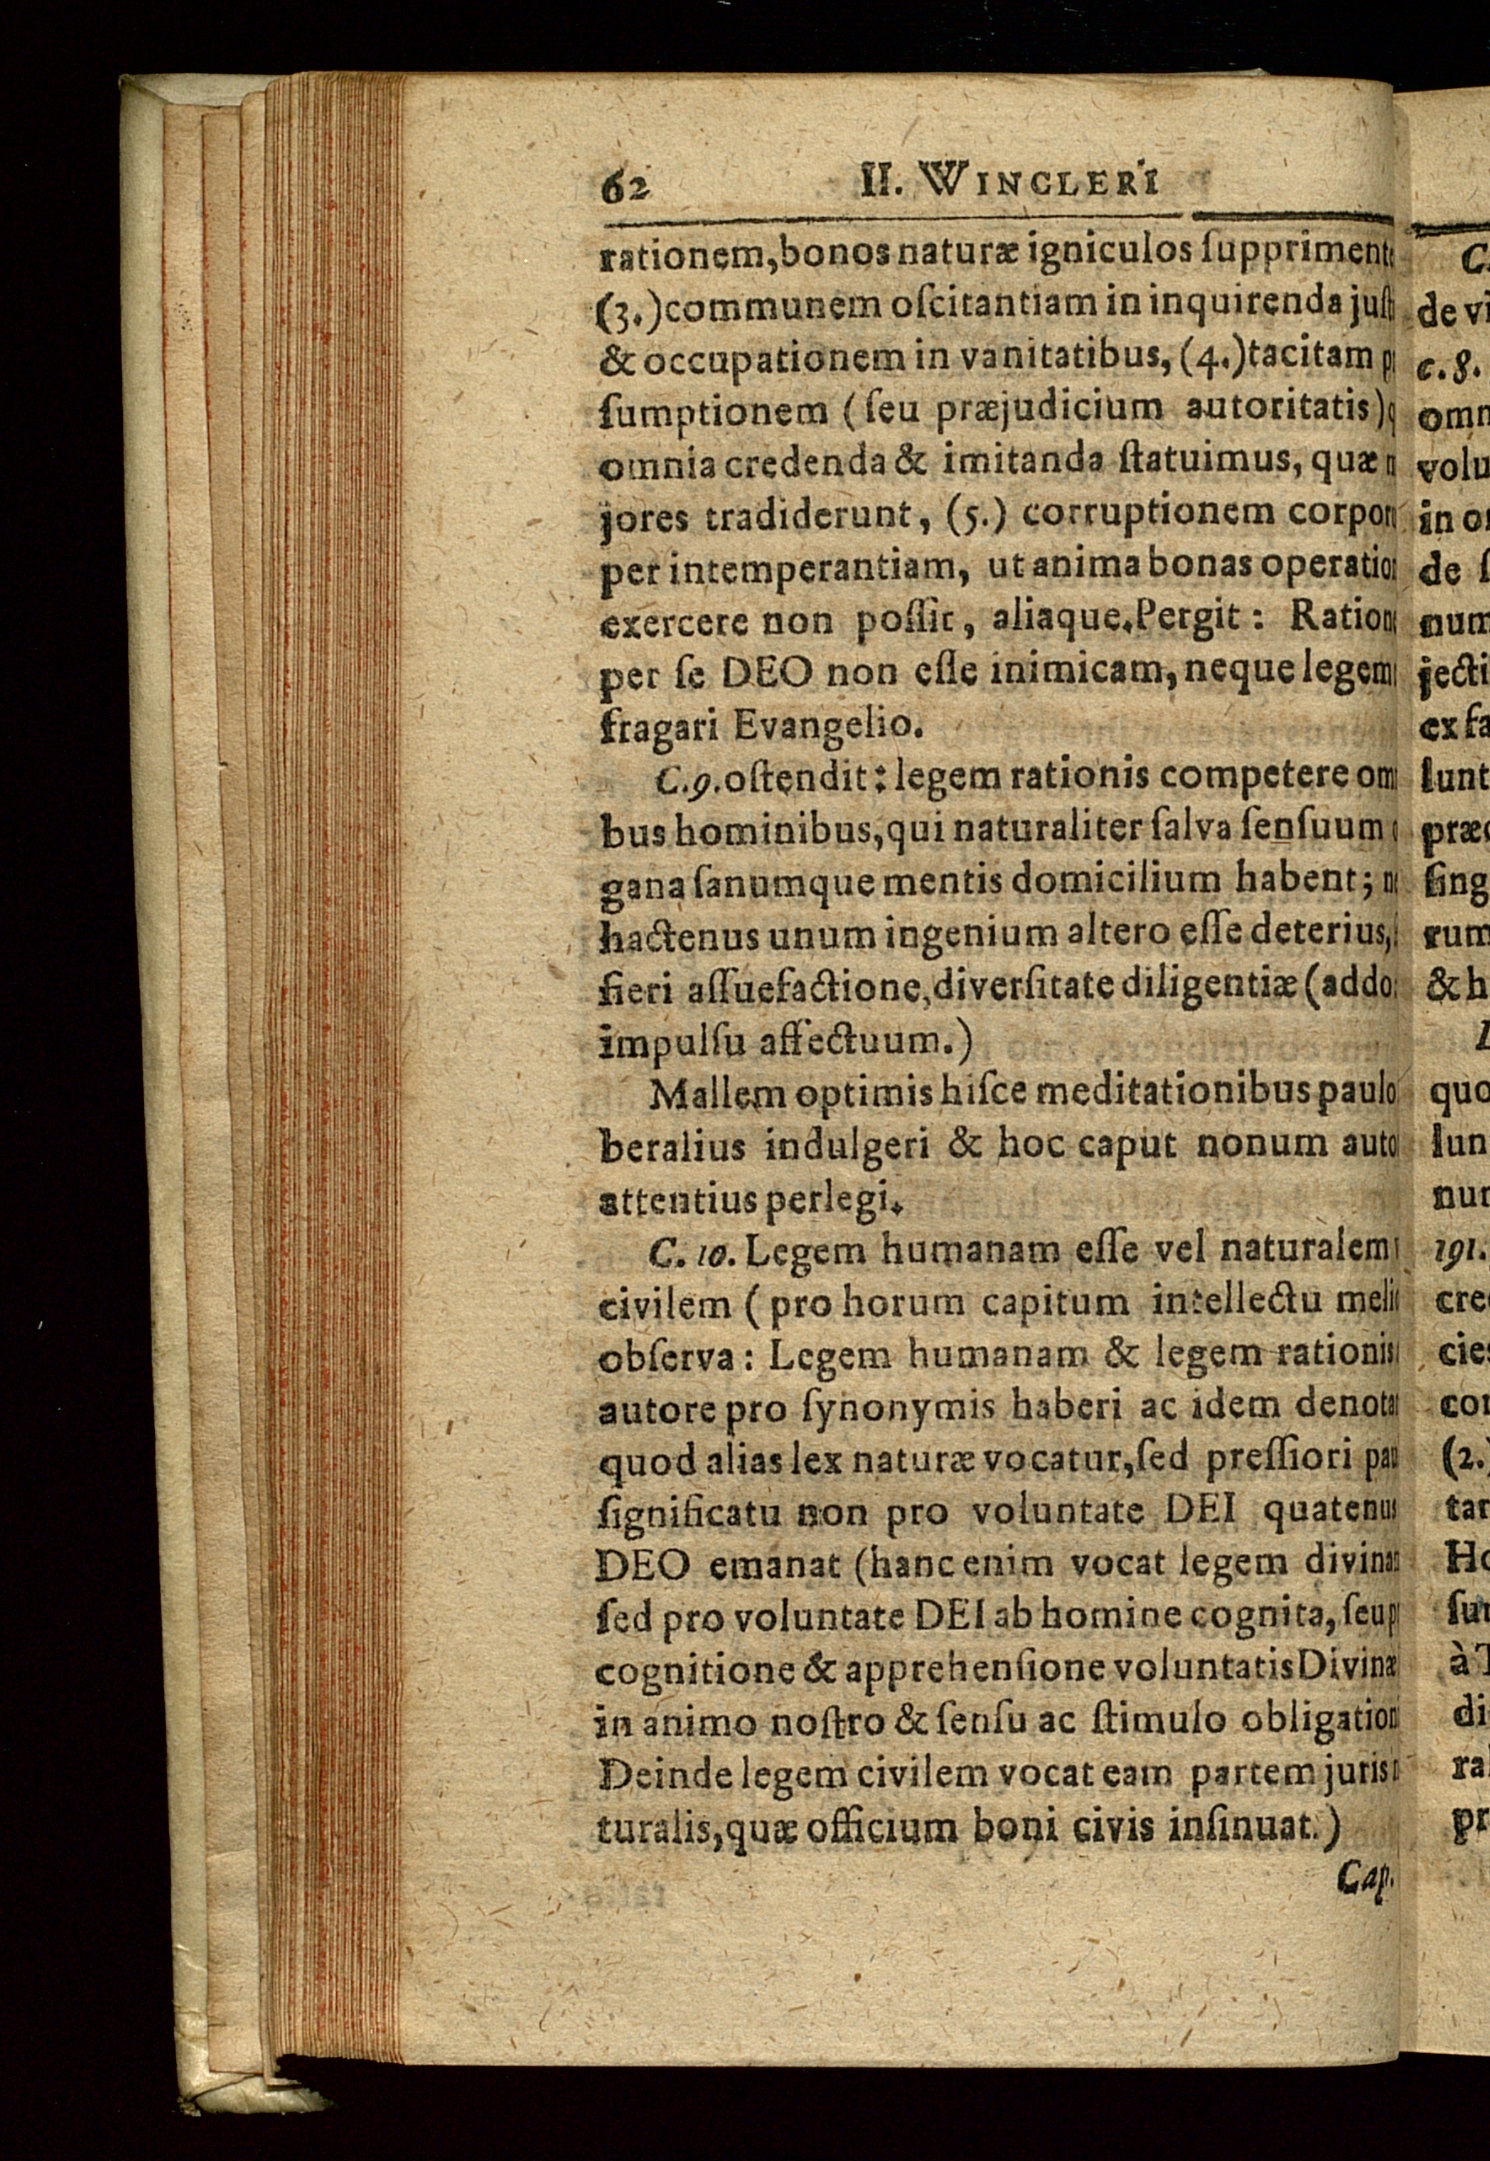 62 II. WINGLERI
rationem, bonos naturæ igniculos ſupprimente
(3.) communem oſcitantiam in inquirenda juſti
& occupationem in vanitatibus, (4.) tacitam
ſumptionem (ſeu præjudicium autoritatis)
omnia credenda & imitanda ſtatuimus, quæ
jores tradiderunt, (5.) corruptionem corpori
per intemperantiam, ut anima bonas operatio
exercere non poſſit, aliaque. Pergit: Ratione
per ſe DEO non eſſe inimicam, neque legem
fragari Evangelio.
C. 9. oſtendit: legem rationis competere om
bus hominibus, qui naturaliter ſalva ſenſuum
gana ſanumque mentis domicilium habent;
hactenus unum ingenium altero eſſe deterius,
fieri aſſuefactione, diverſitate diligentiæ (addo
impulſu affectuum.)
Mallem optimis hiſce meditationibus paulo
beralius indulgeri & hoc caput nonum auto
attentius perlegi.
C. 10. Legem humanam eſſe vel naturalem
civilem (pro horum capitum intellectu meli
obſerva: Legem humanam & legem rationis
autore pro ſynonymis haberi ac idem denota
quod alias lex naturæ vocatur, ſed preſſiori pau
ſignificatu non pro voluntate DEI quatenus
DEO emanat (hanc enim vocat legem divinam
ſed pro voluntate DEI ab homine cognita, ſeu
cognitione & apprehenſione voluntatis Divinæ
in animo noſtro & ſenſu ac ſtimulo obligation
Deinde legem civilem vocat eam partem juris
turalis, quæ officium boni civis inſinuat.)
Cap.
C.
de vi
c. 8.
omn
volu
in o
de ſ
num
jecti
ex fa
lunt
præc
ſing
rum
& h
quo
lun
nun
191.
cre
cies
con
(2.)
tar
Ho
ſun
à T
di
ral
pr